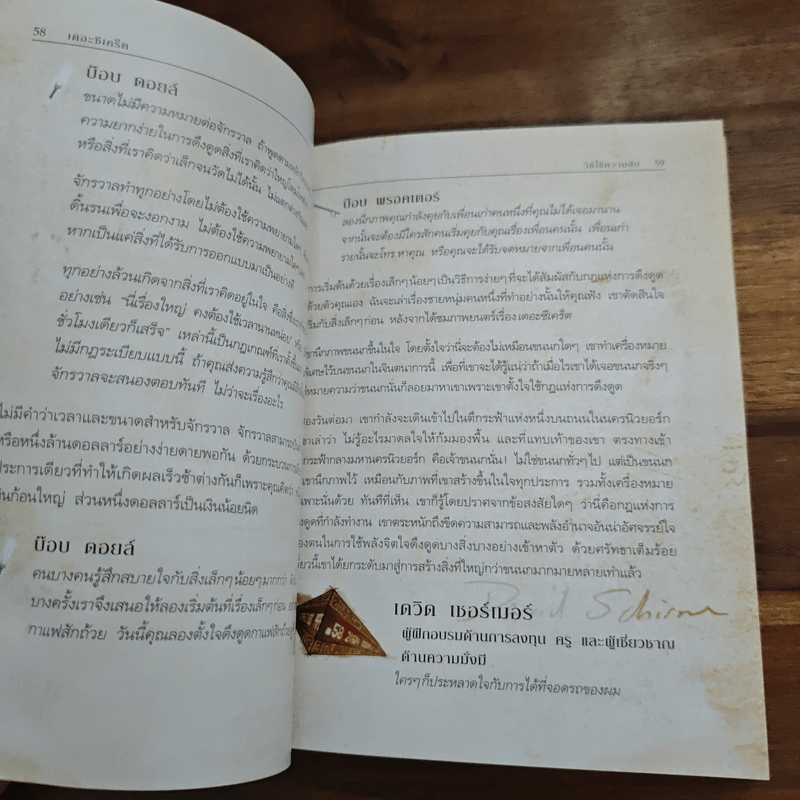 58 เดอะซีเคร็ต
บ๊อบ ดอยล์
ขนาดไม่มีความหมายต่อจักรวาล ถ้าพูดตามหลัก
ความยากง่ายในการดึงดูดสิ่งที่เราคิดว่าใหญ่
หรือสิ่งที่เราคิดว่าเล็กจนวัดไม่ได้นั้น ไม่แตกต่าง
จักรวาลทำทุกอย่างโดยไม่ต้องใช้ความพยายาม
ดิ้นรนเพื่อจะงอกงาม ไม่ต้องใช้ความพยายาม
หากเป็นแค่สิ่งที่ได้รับการออกแบบมาเป็นอย่างดี
ทุกอย่างล้วนเกิดจากสิ่งที่เราคิดอยู่ในใจ คือสิ่ง
อย่างเช่น “นี่เรื่องใหญ่ คงต้องใช้เวลานานหน่อย”
ชั่วโมงเดียวก็เสร็จ” เหล่านี้เป็นกฎเกณฑ์ที่เรา
ไม่มีกฎระเบียบแบบนี้ ถ้าคุณส่งความรู้สึกว่าคุณ
จักรวาลจะสนองตอบทันที ไม่ว่าจะเรื่องอะไร
ไม่มีคำว่าเวลาและขนาดสำหรับจักรวาล จักรวาลสามารถ
หรือหนึ่งล้านดอลลาร์อย่างง่ายดายพอกัน ด้วยกระบวนการ
ประการเดียวที่ทำให้เกิดผลเร็วช้าต่างกันก็เพราะคุณคิดว่า
เงินก้อนใหญ่ ส่วนหนึ่งดอลลาร์เป็นเงินน้อยนิด
บ๊อบ ดอยล์
คนบางคนรู้สึกสบายใจกับสิ่งเล็กๆ น้อยๆ มากกว่า
บางครั้งเราจึงเสนอให้ลองเริ่มต้นที่เรื่องเล็กๆ ก่อน
กาแฟสักถ้วย วันนี้คุณลองตั้งใจดึงดูดกาแฟสักถ้วย
วิธีใช้ความลับ 59
บ๊อบ พรอคเตอร์
ลองนึกภาพคุณกำลังคุยกับเพื่อนเก่าคนหนึ่งที่คุณไม่ได้เจอมานาน
จากนั้นจะต้องมีใครสักคนเริ่มคุยกับคุณเรื่องเพื่อนคนนั้น เพื่อนเก่า
รายนั้นจะโทร.หาคุณ หรือคุณจะได้รับจดหมายจากเพื่อนคนนั้น
การเริ่มต้นด้วยเรื่องเล็กๆ น้อยๆ เป็นวิธีการง่ายๆ ที่จะได้สัมผัสกับกฎแห่งการดึงดูด
ด้วยตัวคุณเอง ฉันจะเล่าเรื่องชายหนุ่มคนหนึ่งที่ทำอย่างนั้นให้คุณฟัง เขาตัดสินใจ
เริ่มกับสิ่งเล็กๆ ก่อน หลังจากได้ชมภาพยนตร์เรื่อง เดอะซีเคร็ต
เขานึกภาพขนนกขึ้นในใจ โดยตั้งใจว่านี่จะต้องไม่เหมือนขนนกใดๆ เขาทำเครื่องหมาย
พิเศษไว้บนขนนกในจินตนาการนี้ เพื่อที่เขาจะได้รู้แน่ว่าถ้าเมื่อไรเขาได้เจอขนนกจริงๆ
หมายความว่าขนนกนั่นก็ลอยมาหาเขาเพราะเขาตั้งใจใช้กฎแห่งการดึงดูด
สองวันต่อมา เขากำลังจะเดินเข้าไปในตึกระฟ้าแห่งหนึ่งบนถนนในนครนิวยอร์ก
เขาเล่าว่า ไม่รู้อะไรมาดลใจให้ก้มมองพื้น และที่แทบเท้าของเขา ตรงทางเข้า
ตึกระฟ้ากลางมหานครนิวยอร์ก คือเจ้าขนนกนั่น! ไม่ใช่ขนนกทั่วๆ ไป แต่เป็นขนนก
เขานึกภาพไว้ เหมือนกับภาพที่เขาสร้างขึ้นในใจทุกประการ รวมทั้งเครื่องหมาย
เฉพาะนั่นด้วย ทันทีที่เห็น เขาก็รู้โดยปราศจากข้อสงสัยใดๆ ว่านี่คือกฎแห่งการ
ดึงดูดที่กำลังทำงาน เขาตระหนักถึงขีดความสามารถและพลังอำนาจอันน่าอัศจรรย์ใจ
ของตนในการใช้พลังจิตใจดึงดูดบางสิ่งบางอย่างเข้าหาตัว ด้วยศรัทธาเต็มร้อย
เดี๋ยวนี้เขาได้ยกระดับมาสู่การสร้างสิ่งที่ใหญ่กว่าขนนกมากมายหลายเท่าแล้ว
David Schirmer
เดวิด เชอร์เมอร์
ผู้ฝึกอบรมด้านการลงทุน ครู และผู้เชี่ยวชาญ
ด้านความมั่งมี
ใครๆ ก็ประหลาดใจกับการได้ที่จอดรถของผม